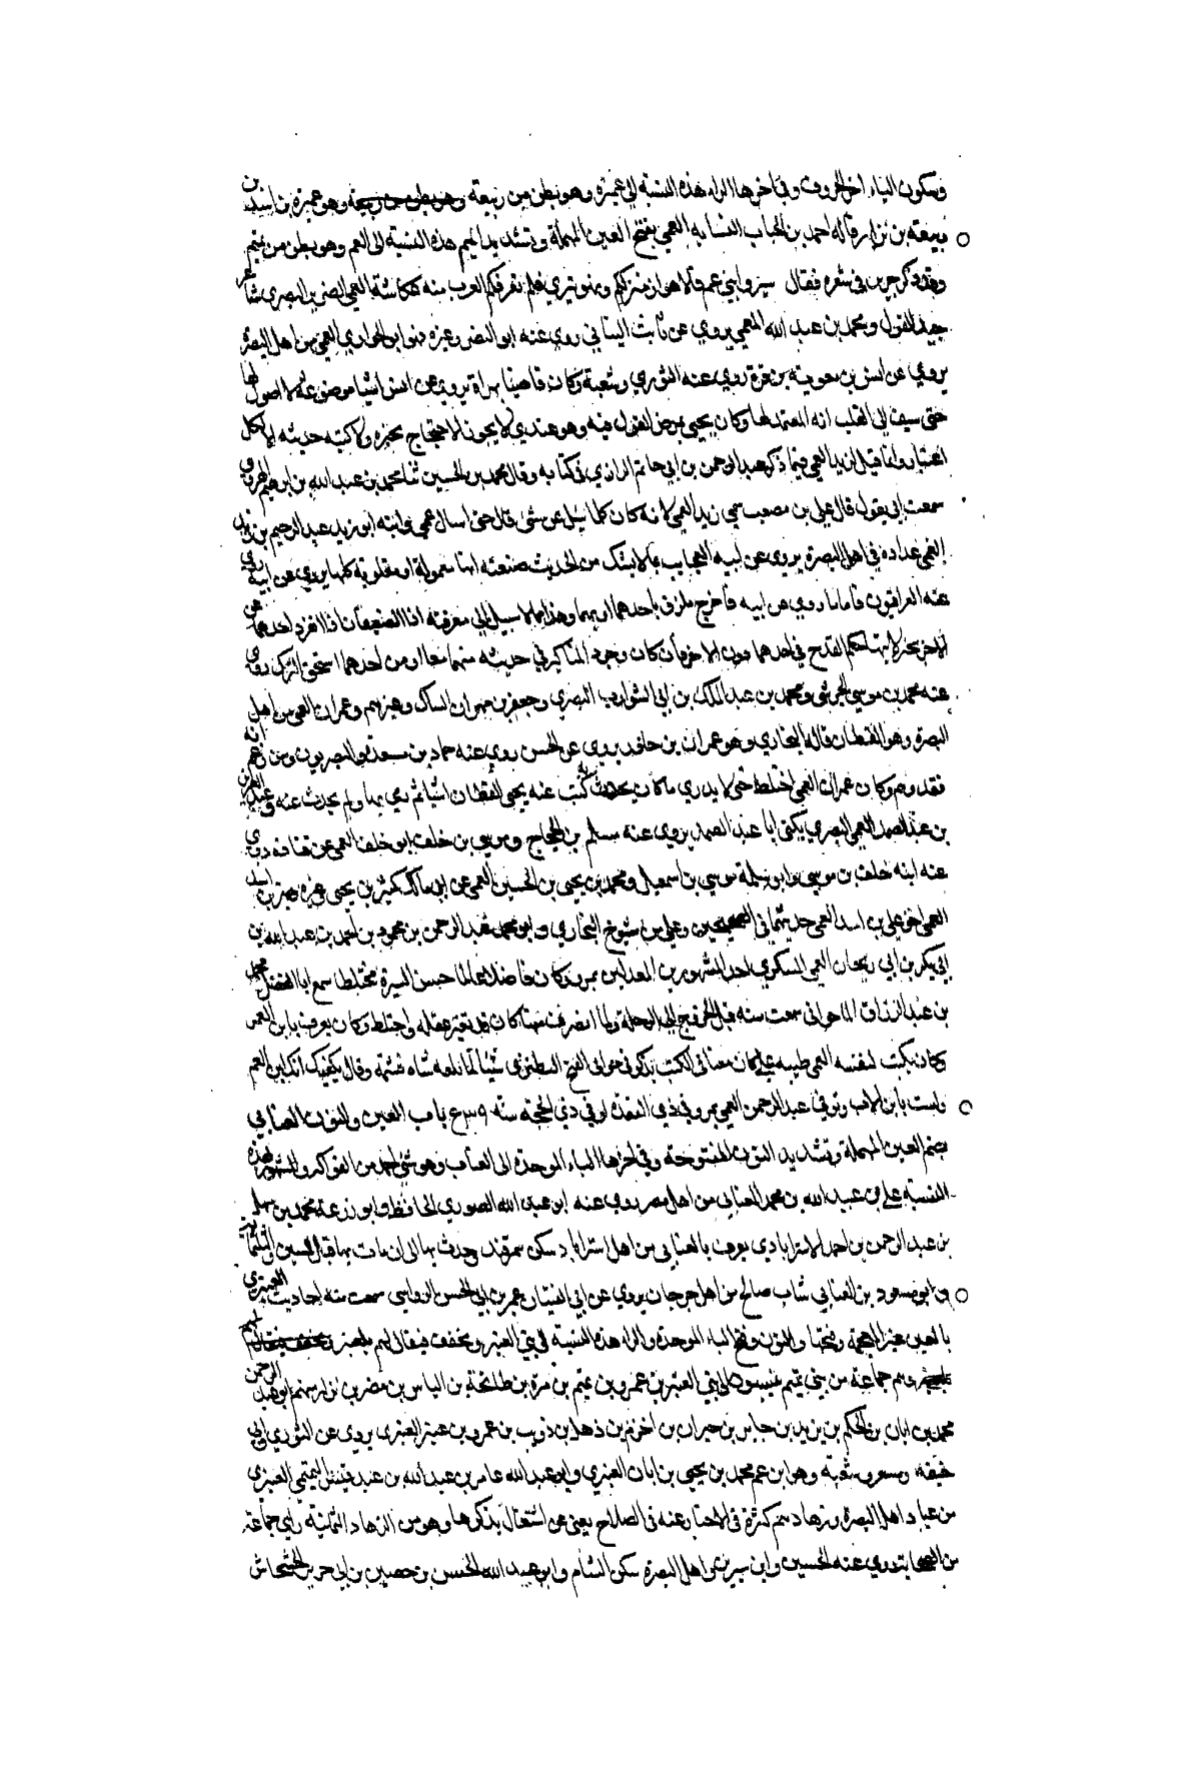 وسكون الياء اخر الحروف وفي اخرها الراء هذه النسبة الى عميرة وهو بطن من ربيعة وهو بطن من ربيعة وهو عميرة بن اسد بن
ربيعة بن نزار قاله احمد بن الحباب النسابه العمي بفتح العين المهملة وتشديد الميم هذه النسبة الى العم وهو بطن من تميم
وقد ذكر جرير في شعره فقال سيروا بني عم فالاهواز منزلكم ونهر تيري فلم تعرفكم العرب منه عكاشة العمي الضرير البصري شاعر
جيد القول ومحمد بن عبد الله العمي يروي عن ثابت البناني روى عنه ابو النضر وغيره وزيد ابو الحواري العمي من اهل البصرة
يروي عن انس بن معوية بن قرة روى عنه الثوري وشعبة وكان قاضيا بهراة يروي عن انس اشيا موضوعة لا اصول لها
حتى سبق الى القلب انه المتعمد لها وكان يحيى يمرض القول فيه وهو عندي لا يجوز الاحتجاج بخبره ولا كتبة حديثه الا لكل
اعتبار وانما قيل لزيد العمي فيما ذكر عبد الرحمن بن ابي حاتم الرازي في كتابه وقال محمد بن الحسين ثنا محمد بن عبد الله بن ابرهيم المروزي
سمعت ابي يقول قال علي بن مصعب سمي زيد العمي لانه كان كلما سيل عن شي قال حتى اسال عمي وابنه ابو زيد عبد الرحيم بن زيد
العمي عداده في اهل البصرة يروي عن ابيه العجايب مالا يشك من الحديث صنعته انها معمولة او مقلوبة كلها يروي عن ابيه روى
عنه العراقيون فاما ما روى عن ابيه فالجرح ملزق باحدهما او بهما وهذا مالا سبيل الى معرفته اذا الضعيفان اذا انفرد احدهما عن
الاخر بخبر لا يتها لحكم القدح في احدهما دون الاخر وان كان وجود المناكير في حديثه منهما معا او من احدهما استحق الترك روى
عنه محمد بن موسى الحرشي ومحمد بن عبد الملك بن ابي الشوارب البصري وجعفر بن مهران السباك وغيرهم وعمران العمي من اهل
البصرة وهو القطان قاله البخاري وهو عمران بن داود يروي عن الحسن روى عنه حماد بن مسعدة والبصريون ومن زعم انه
فقد وهم وكان عمران العمي اختلط حتى لا يدري ما كان يحدث به كتب عنه يحيى القطان اشيا ثم رمى بها ولم يحدث عنه وعبد العزيز
بن عبد الصمد العمي البصري يكنى ابا عبد الصمد يروي عنه مسلم بن الحجاج وموسى بن خلف ابو خلف العمي عن قتادة روى
عنه ابنه خلف بن موسى وابو سلمة موسى بن اسمعيل ومحمد بن يحيى بن الحسين العمي عن ابي مالك كثير بن يحيى وغيره وبهز بن اسد
العمي اخو علي بن اسد العمي حديثهما في الصحيحين وعلي من شيوخ البخاري وابو محمد عبد الرحمن بن محمود بن احمد بن عبد الله بن
ابي بكر بن ابي ريحان العمي السكري احد المشهورين المعدلين بمرو وكان فاضلا عالما حسن السيرة مختلطا سمع ابا الفضل محمد
بن عبد الرزاق الماخواني سمعت منه قبل الخروج الى الرحلة ولما انصرفت منها كان قد تغير عقله واختلط وكان يعرف بابن العمي
وكان يكتب لنفسه العمي طيبه علي كان معنا في الكتب
ولست بابن الاب وتوفي عبد الرحمن العمي بمرو في ذي القعدة او في ذي الحجة سنة ٥٣٩ باب العين والنون العنابي
بضم العين المهملة وتشديد النون المفتوحة وفي اخرها الباء الموحدة الى العناب وهو شي احمر من الفواكه والمشهور بهذه
النسبة علي بن عبيد الله بن محمد العنابي من اهل مصر روى عنه ابو عبد الله الصوري الحافظ وابو زرعة محمد بن سهل
بن عبد الرحمن بن احمد الاستراباذي يعرف بالعنابي من اهل استراباد سكن سمرقند وحدث بها الى ان مات بها قبل السبعين والثلثماية
وابو مسعود بن العنابي شاب صالح من اهل جرجان يروي عن ابي الفتيان عمر بن ابي الحسن الرواسي سمعت منه احاديث العنبري
بالعين غير المعجمة وفتحها والنون وفتح الباء الموحدة والراء هذه النسبة الى بني العنبر ويخفف فيقال لهم بلعنبر ويخفف فيقال لهم
بلعنبر وهم جماعة من بني تميم ينسبون الى بني العنبر بن عمرو بن تميم بن مرة بن طابخة بن الياس بن مضر بن نزار منهم ابو عبد الرحمن
محمد بن ابان بن الحكم بن يزيد بن جابر بن حبران بن اخرم بن ذهل بن ذويب بن عمرو بن عنبر العنبري يروي عن الثوري وابي
حنيفة ومسعر وشعبة وهو ابن عم محمد بن يحيى بن ابان العنبري وابو عبد الله عامر بن عبد الله بن عبد قيس التميمي العنبري
من عباد اهل البصرة وزهادهم كثرة في الاخبار عنه في الصلاح يغني عن اشتغال بذكرها وهو من الزهاد الثمانية راى جماعة
من الصحابة روى عنه الحسين وابن سيرين من اهل البصرة سكن الشام وابو عبيد الله الحسن بن حصين بن ابي حر بن الخشخاش